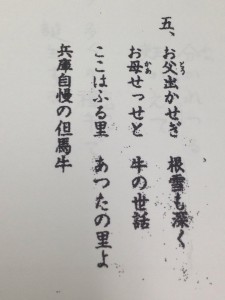 五、お父出かせぎ　根雪も深く
お母せっせと　牛の世話
ここはふる里　あつたの里よ
兵庫自慢の但馬牛